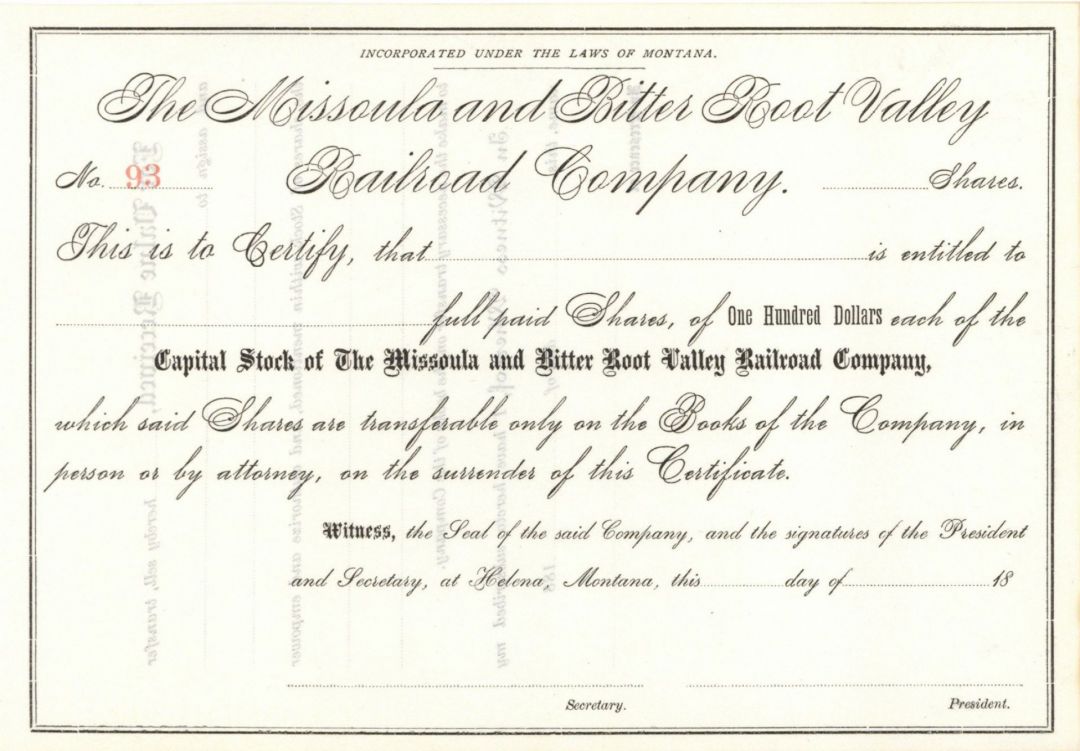 INCORPORATED UNDER THE LAWS OF MONTANA.
The Missoula and Bitter Root Valley
No. 93 Railroad Company. Shares.
This is to Certify, that is entitled to
full paid Shares, of One Hundred Dollars each of the
Capital Stock of The Missoula and Bitter Root Valley Railroad Company,
which said Shares are transferable only on the Books of the Company, in
person or by attorney, on the surrender of this Certificate.
Witness, the Seal of the said Company, and the signatures of the President
and Secretary, at Helena, Montana, this day of 18
Secretary. President.